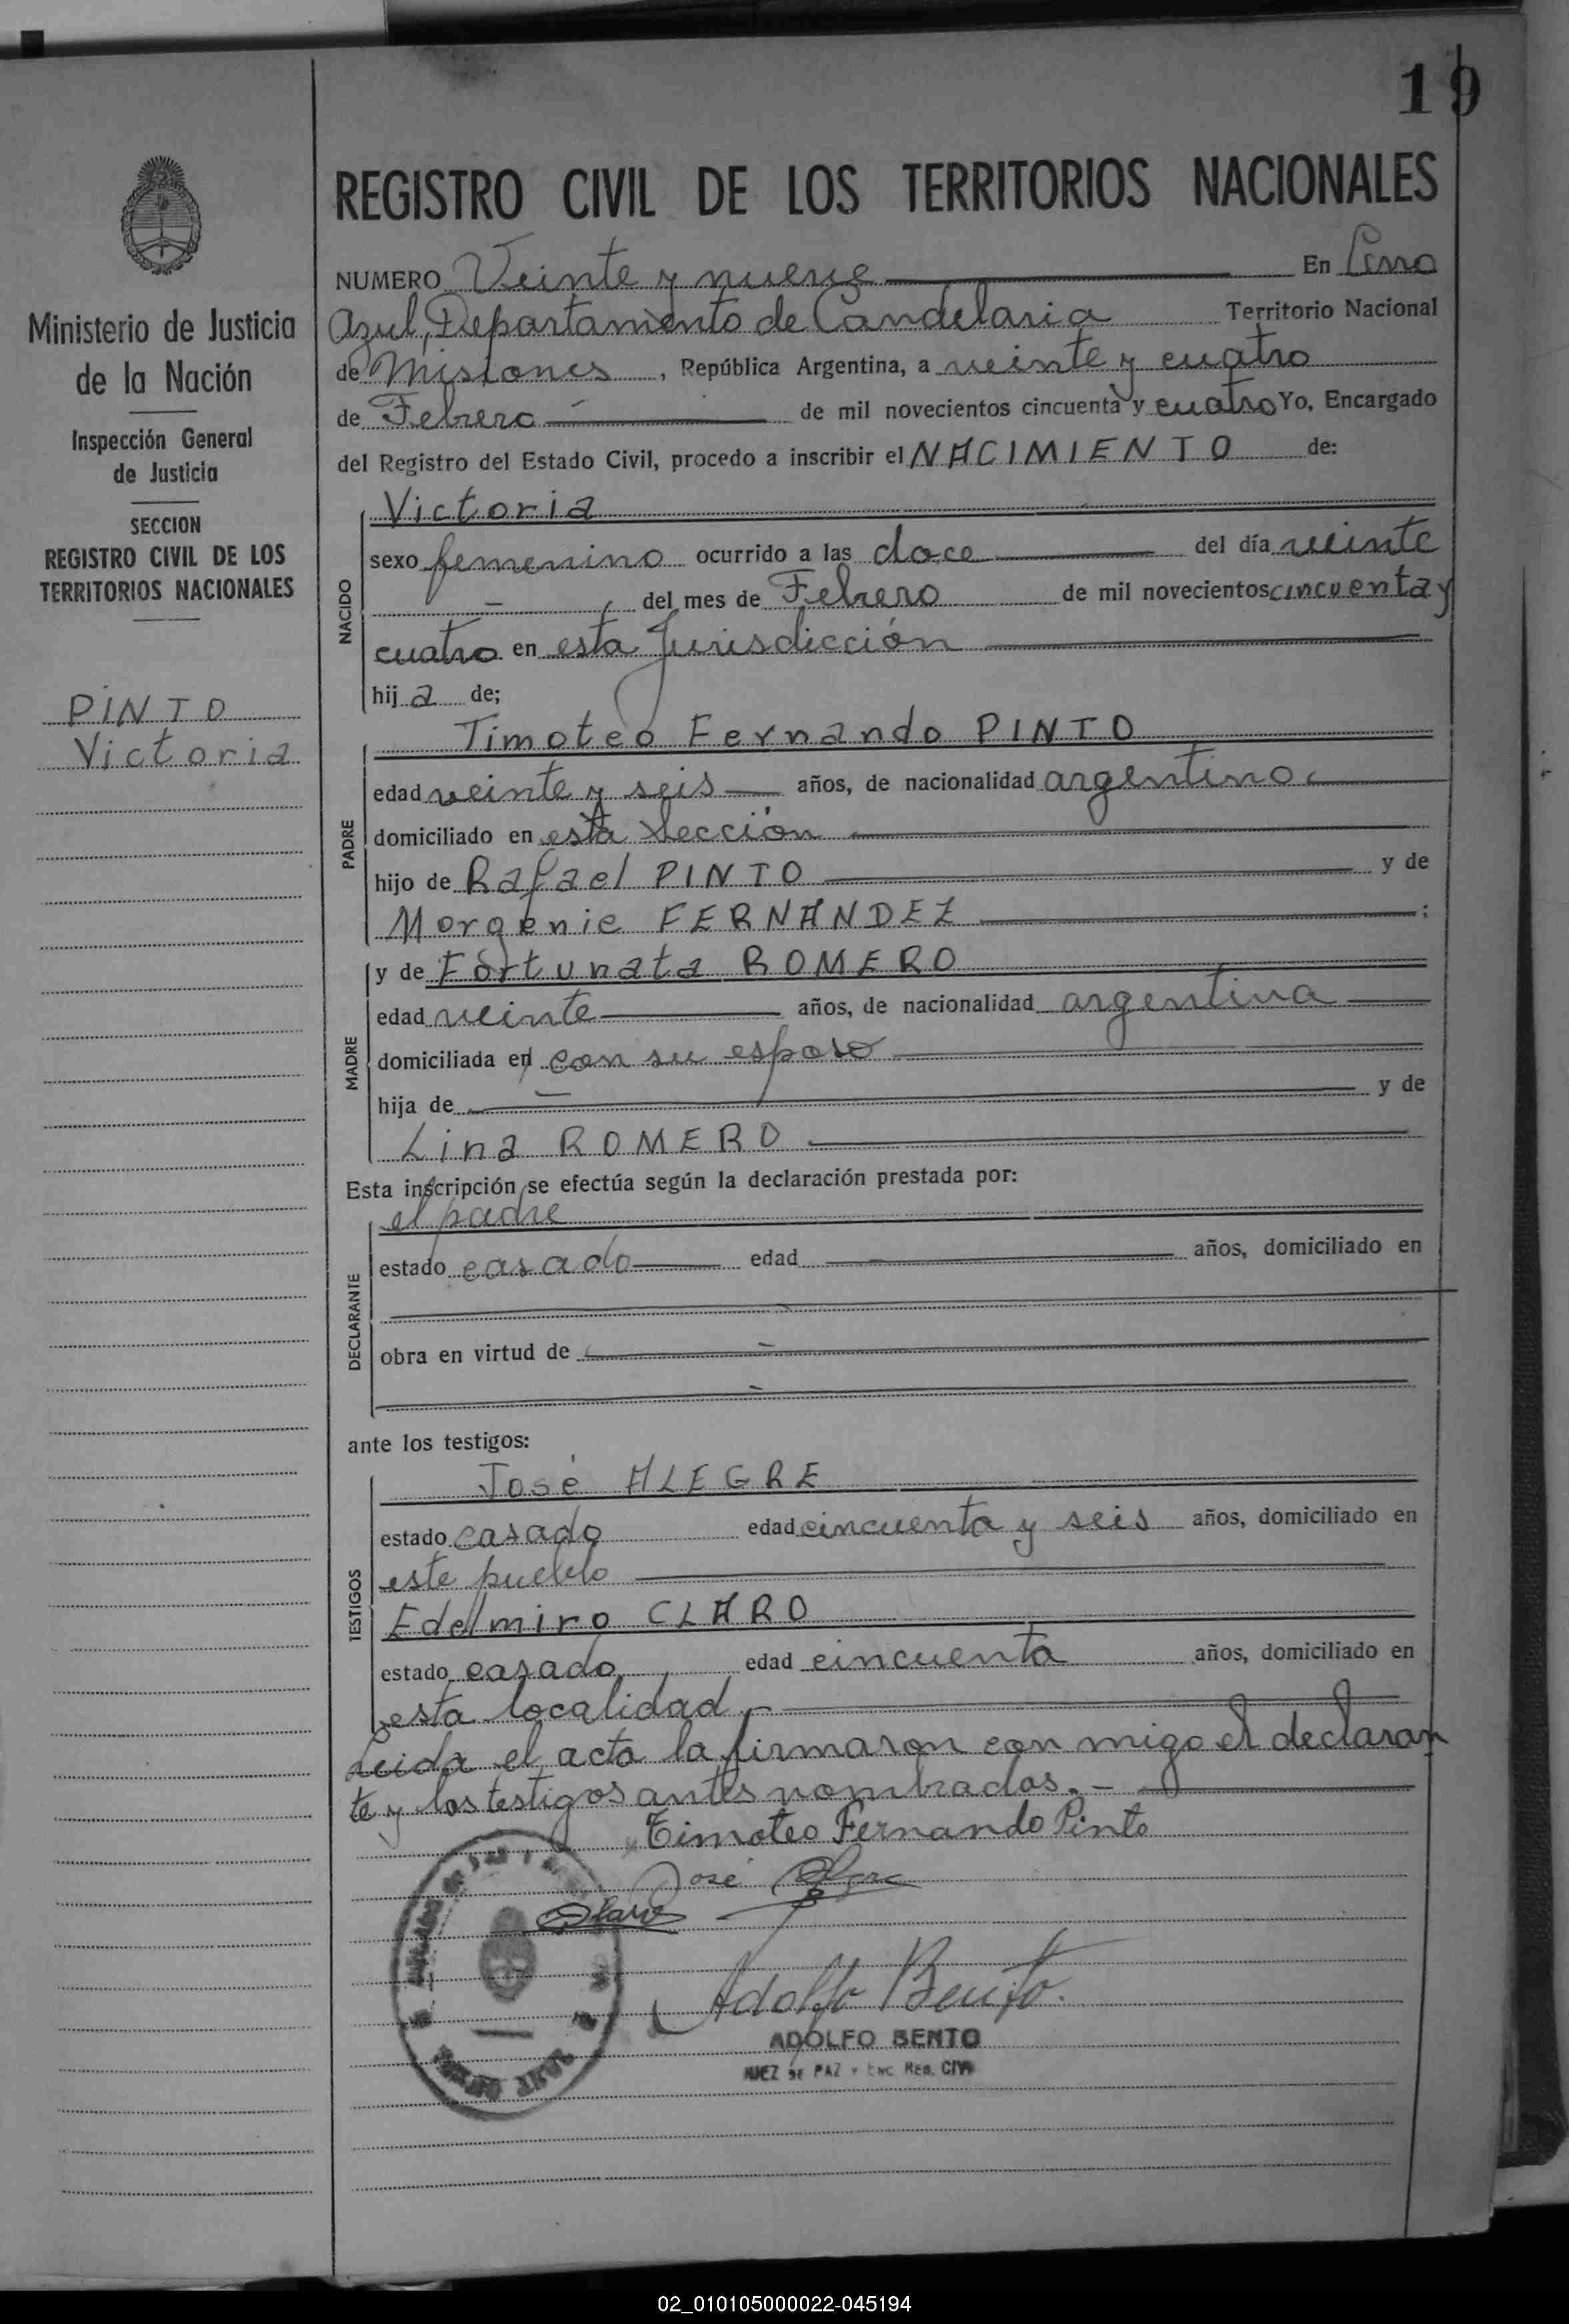 19
REGISTRO CIVIL DE LOS TERRITORIOS NACIONALES
Ministerio de Justicia
de la Nación
Inspección General
de Justicia
SECCION
REGISTRO CIVIL DE LOS
TERRITORIOS NACIONALES
PINTO
Victoria
NUMERO Veinte y nueve En Cerro
Azul, Departamento de Candelaria Territorio Nacional
de Misiones, República Argentina, a veinte y cuatro
de Febrero de mil novecientos cincuenta y cuatro Yo, Encargado
del Registro del Estado Civil, procedo a inscribir el NACIMIENTO de:
NACIDO
Victoria
sexo femenino ocurrido a las doce del día veinte
del mes de Febrero de mil novecientos cincuenta y
cuatro en esta Jurisdicción
hij a de;
PADRE
Timoteo Fernando PINTO
edad veinte y seis años, de nacionalidad argentino
domiciliado en esta Sección
hijo de Rafael PINTO y de
Morgenie FERNANDEZ ;
MADRE
y de Fortunata ROMERO
edad veinte años, de nacionalidad argentina
domiciliada en con su esposo
hija de y de
Lina ROMERO
Esta inscripción se efectúa según la declaración prestada por:
DECLARANTE
el padre
estado casado edad años, domiciliado en
obra en virtud de
ante los testigos:
TESTIGOS
José ALEGRE
estado casado edad cincuenta y seis años, domiciliado en
este pueblo
Edelmiro CLARO
estado casado edad cincuenta años, domiciliado en
esta localidad.-
Leida el acta la firmaron con migo el declaran
te y los testigos antes nombrados.-
Timoteo Fernando Pinto
José Alegre
Claro
Adolfo Bento.
ADOLFO BENTO
JUEZ DE PAZ Y ENC. REG. CIVIL
02_010105000022-045194